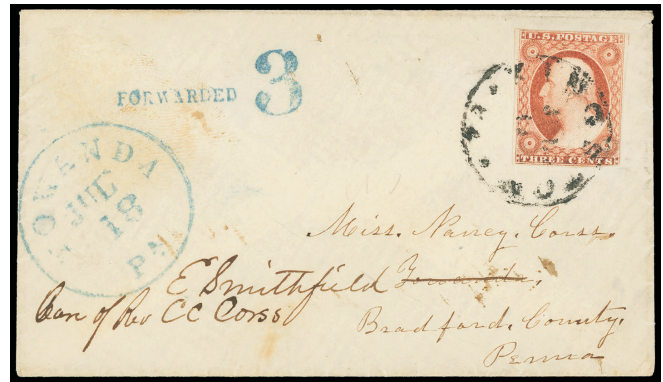 U.S. POSTAGE
THREE CENTS
FORWARDED 3
TOWANDA
JUL
18
PA
Miss. Nancy. Corss.
E Smithfield Towanda,
Care of Rev CC Corss
Bradford. County.
Penna